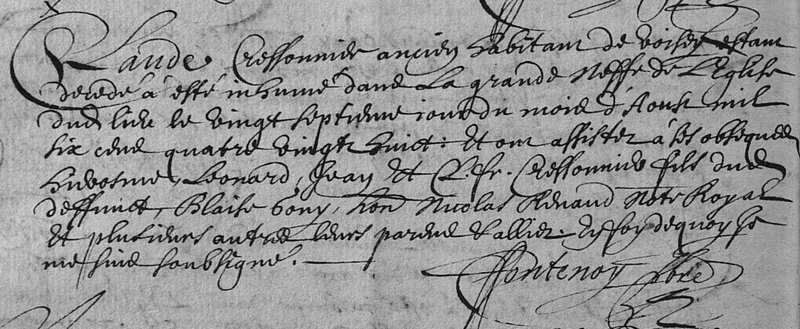 Claude Cressonnier ancien habitant de voisey estant
decede à esté inhumé dans La grande Neffe de L'Eglise
dud lieu le vingt septieme jour du mois d'Aoust mil
six cens quatre vingts huict : et ont assister à ses obseques
Leonard, Jean et Cressonnier fils dud
deffunct, Blaise Gony, hon Nicolas Renard Note Royal
et plusieurs autres leurs parens et alliez. En foy de quoy Je
me suis soubsigné.
Fontenoy